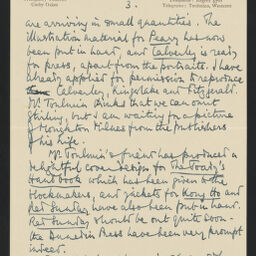 Corby Oaken
3.
Telegrams: Tordoxins, Westcent
are arriving in small quantities. The
illustration material for Peary has now
been put in hand, and Calverley is ready
for press, apart from the portraits. I have
already applied for permission to reproduce
Calverley, Kinglake and Fitzgerald.
Mr. Toulmin thinks that we can omit
Stirling, but I am waiting for a picture
of Monckton Milnes from the publishers
of his life.
Mr. Toulmin's friend has produced a
delightful cover design for The Toady's
Handbook which has been given to the
blockmakers, and jackets for How to and
Red Sunday have also been put in hand.
Red Sunday should be out quite soon –
the Dunedin Press have been very prompt
indeed.